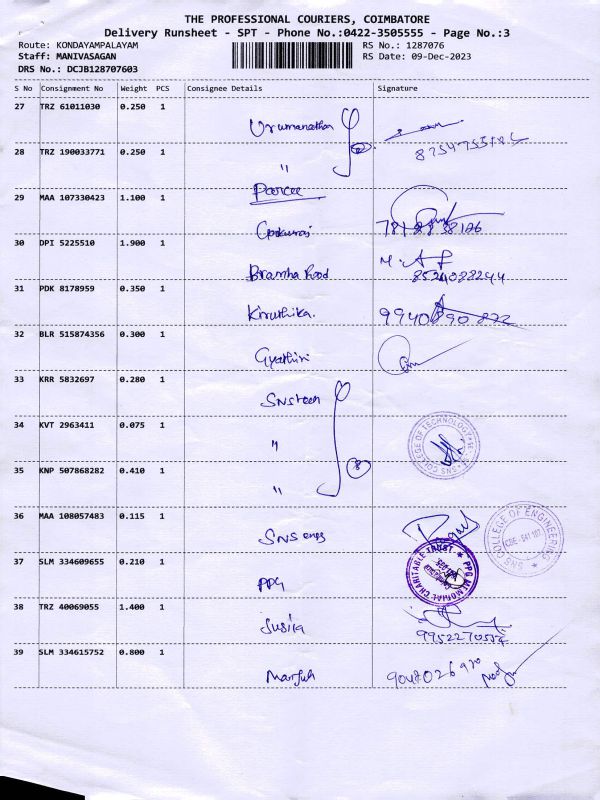 THE PROFESSIONAL COURIERS, COIMBATORE
Delivery Runsheet - SPT - Phone No.:0422-3505555 - Page No.:3
Route: KONDAYAMPALAYAM RS No.: 1287076
Staff: MANIVASAGAN RS Date: 09-Dec-2023
DRS No.: DCJB128707603
S No Consignment No Weight PCS Consignee Details Signature
27 TRZ 61011030 0.250 1
28 TRZ 190033771 0.250 1
"
29 MAA 107330423 1.100 1
30 DPI 5225510 1.900 1
Bramha food
31 PDK 8178959 0.350 1
Kiruthika. 9940890872
32 BLR 515874356 0.300 1
33 KRR 5832697 0.280 1
SNS tech
34 KVT 2963411 0.075 1
" SNS COLLEGE OF TECHNOLOGY
35 KNP 507868282 0.410 1
"
36 MAA 108057483 0.115 1
SNS engg SNS COLLEGE OF ENGINEERING
CBE - 641 107
37 SLM 334609655 0.210 1
PPG PPG MEMORIAL CHARITABLE TRUST
38 TRZ 40069055 1.400 1
Susila
39 SLM 334615752 0.800 1